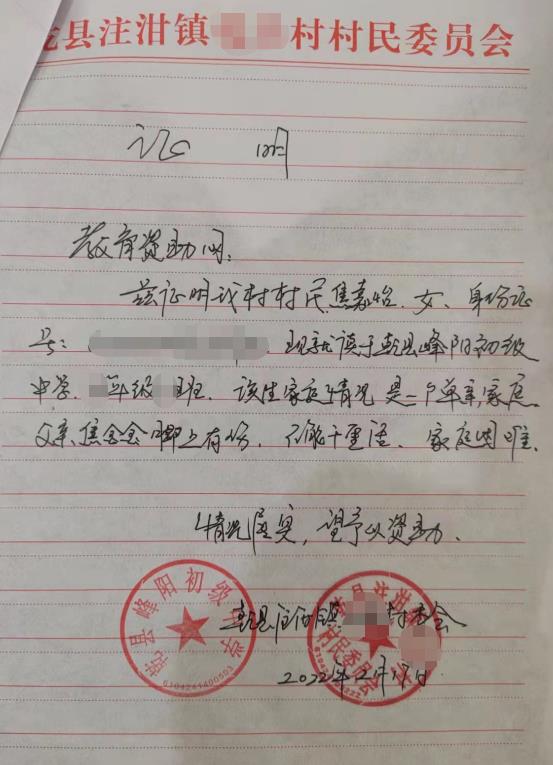 乾县注泔镇 村村民委员会
证 明
教育资助网:
兹证明我村村民焦嘉怡、女、身份证
号: 现就读于乾县峰阳初级
中学. 年级 班. 该生家庭情况是一个单亲家庭.
父亲焦念念脚上有伤. 不能干重活. 家庭困难.
情况属实, 望予以资助.
乾县注泔镇 村委会
2022年2月 日
乾县峰阳初级 学
6104241400503
县注泔 村民委员会